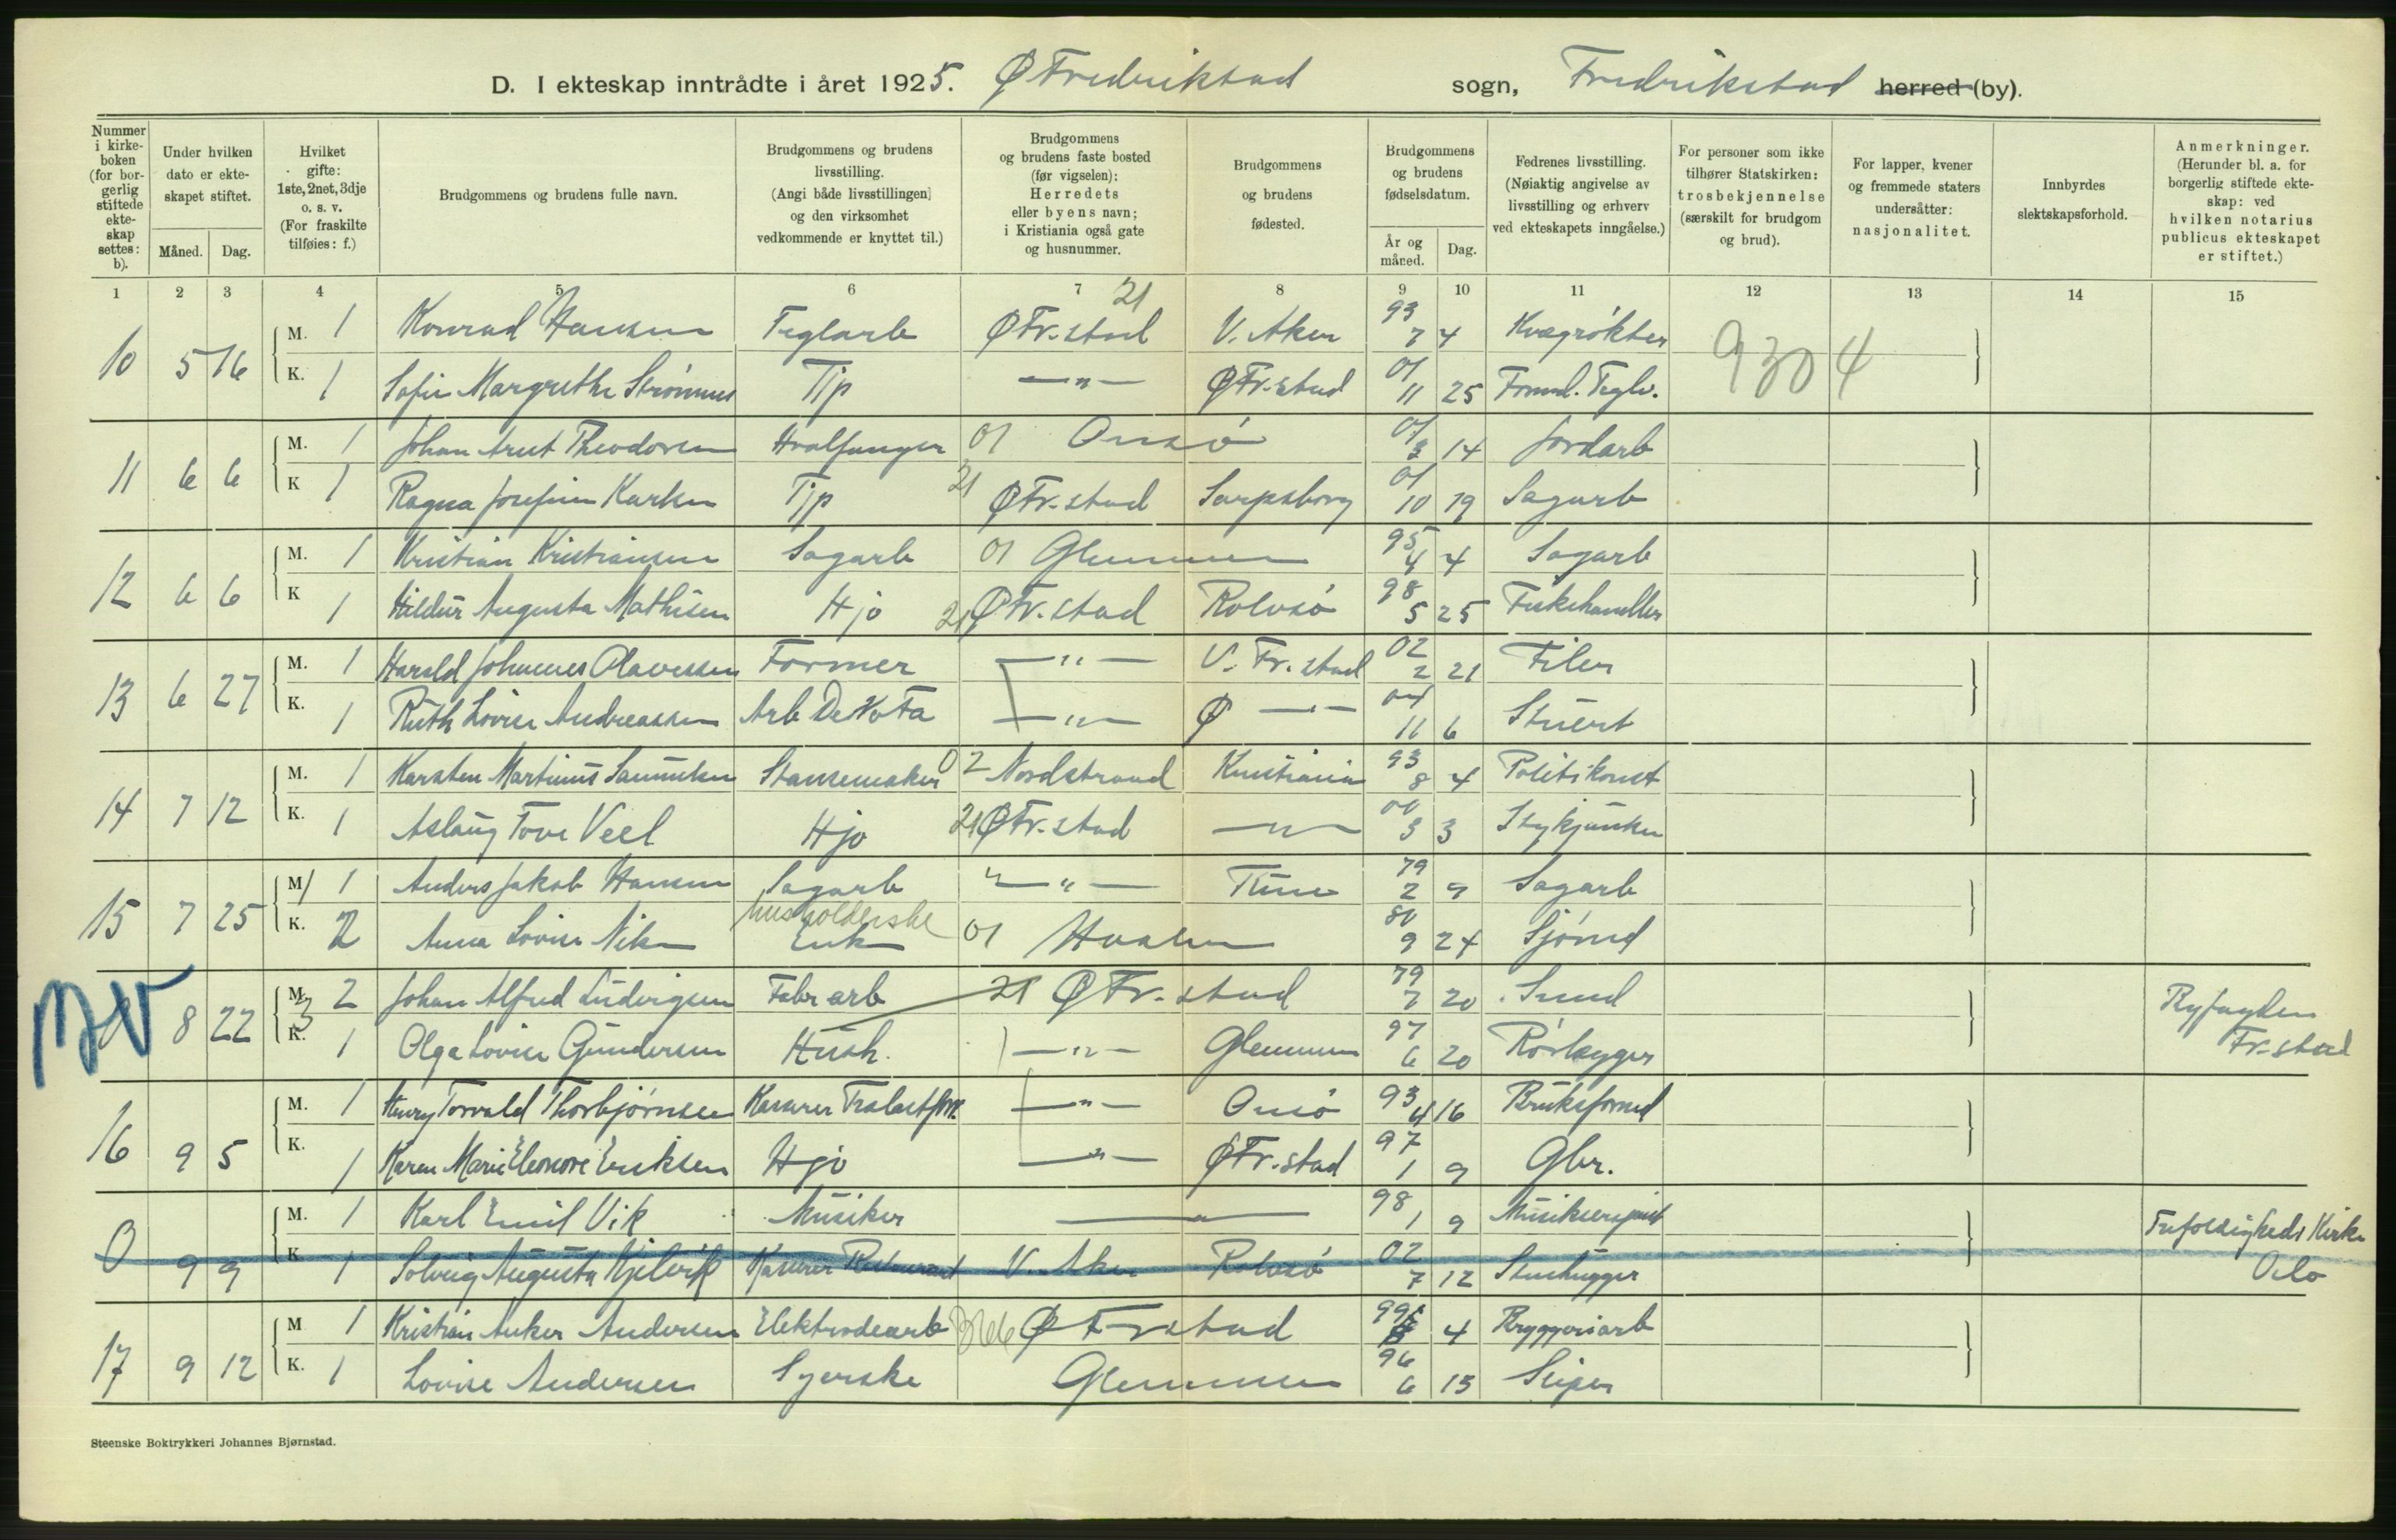 D. I ekteskap inntrådte i året 1925. Ø Fredrikstad sogn, Fredrikstad herred (by).
Nummer i kirkeboken (for borgerlig stiftede ekteskap settes: b).
Under hvilken dato er ekteskapet stiftet.
Måned. Dag.
Hvilket gifte: 1ste, 2net, 3dje o. s. v. (For fraskilte tilføies: f.)
Brudgommens og brudens fulle navn.
Brudgommens og brudens livsstilling. (Angi både livsstillingen og den virksomhet vedkommende er knyttet til.)
Brudgommens og brudens faste bosted (før vigselen): Herredets eller byens navn; i Kristiania også gate og husnummer.
Brudgommens og brudens fødested.
Brudgommens og brudens fødselsdatum.
År og måned. Dag.
Fedrenes livsstilling. (Nøiaktig angivelse av livsstilling og erhverv ved ekteskapets inngåelse.)
For personer som ikke tilhører Statskirken: trosbekjennelse (særskilt for brudgom og brud).
For lapper, kvener og fremmede staters undersåtter: nasjonalitet.
Innbyrdes slektskapsforhold.
Anmerkninger. (Herunder bl. a. for borgerlig stiftede ekteskap: ved hvilken notarius publicus ekteskapet er stiftet.)
1 2 3 4 5 6 7 8 9 10 11 12 13 14 15
10 5 16 M. 1 Konrad Hansen Teglarb 21 Ø Fr.stad V. Aker 93 7 4 Kvegrøkter 9304
K. 1 Sofie Margrethe Strømnes Tjp — " — Ø Fr.stad 01 11 25 Formd. Teglv.
11 6 6 M. 1 Johan Arnt Theodorsen Hvalfanger 01 Onsø 01 3 14 Jordarb
K 1 Ragna Josefine Karlsen Tjp 21 Ø Fr.stad Sarpsborg 01 10 19 Sagarb
12 6 6 M. 1 Kristian Kristiansen Sagarb 01 Glemmen 95 4 4 Sagarb
K 1 Hildur Augusta Mathisen Hjo 21 Ø Fr.stad Rolvsø 98 5 25 Fiskehandler
13 6 27 M. 1 Harald Johannes Olavessen Former — " — V. Fr.stad 02 2 21 Filer
K. 1 Ruth Lovise Andreassen Arb De No Fa — " — Ø — " — 04 11 6 Stuert
14 7 12 M. 1 Karsten Martinius Samuelsen Stansemaker 02 Nordstrand Kristiania 93 8 4 Politikonst
K. 1 Aslaug Tove Veel Hjo 21 Ø Fr.stad — " — 00 3 3 Stykjunker
15 7 25 M 1 Anders Jakob Hansen Sagarb — " — Tune 79 2 9 Sagarb
K. 2 Anna Lovise Nilsen husholderske Enk 01 Hvaler 80 9 24 Sjømd
8 22 M. 2 Johan Alfred Ludvigsen Fabr arb 21 Ø Fr.stad 79 7 20 Smed Byfogden
3 K. 1 Olga Lovise Gundersen Hush. — " — Glemmen 97 6 20 Rørlegger Fr.stad
16 9 5 M. 1 Henry Torvald Thorbjørnsen Kaserer Trælastforr. — " — Onsø 93 4 16 Bruksformd
K. 1 Karen Marie Eleonore Eriksen Hjo — " — Ø Fr.stad 97 1 9 Gbr.
0 9 9 M. 1 Karl Emil Vik Musiker — " — 98 1 9 Musikersjant Trefoldigheds Kirke
K 1 Solveig Augusta Kjelvik Kaserer Restaurant V. Aker Rolvsø 02 7 12 Stenhugger Oslo
17 9 12 M 1 Kristian Anker Andersen Elektrodearb Ø Fr stad 99 4 Bryggeriarb
K. 1 Lovise Andersen Syerske Glemmen 96 6 15 Skiper
Steenske Boktrykkeri Johannes Bjørnstad.